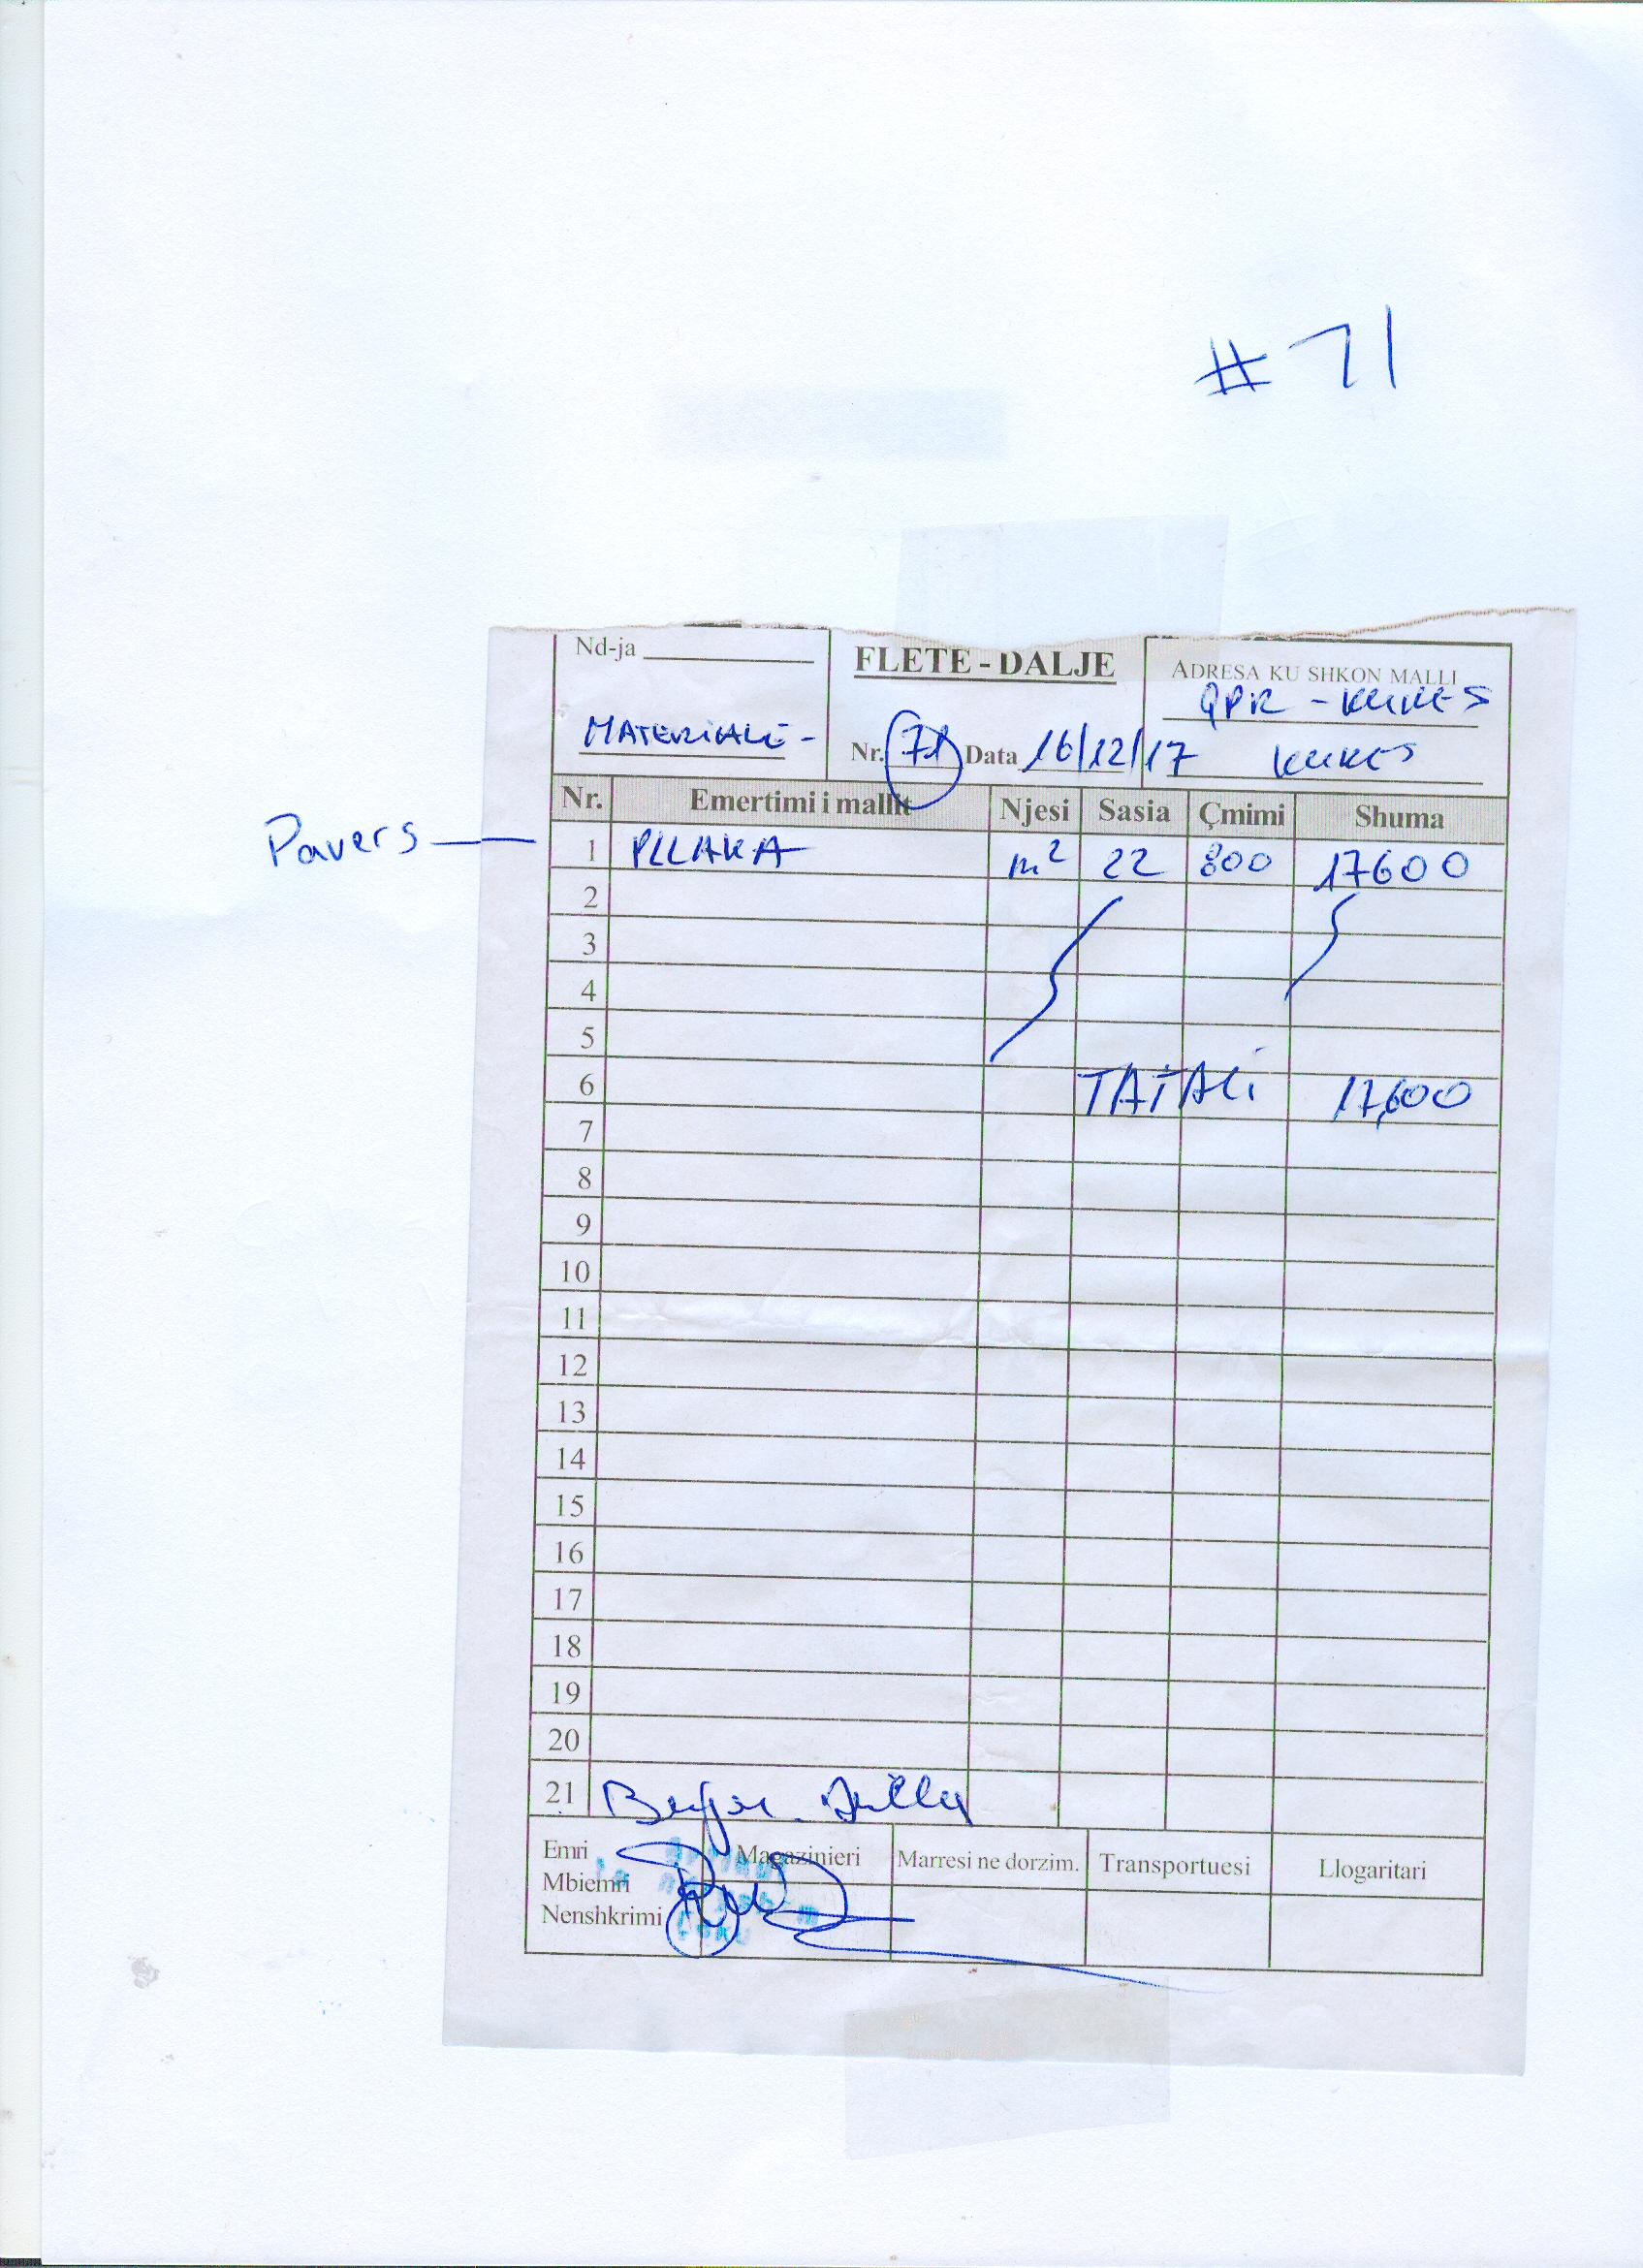 # 71
Nd-ja
FLETE - DALJE
ADRESA KU SHKON MALLI
QPR - KUKES
MATERIALE -
Nr. 71 Data 16/12/17
KUKES
Nr. Emertimi i mallit Njesi Sasia Çmimi Shuma
Pavers
1 PLLAKA m² 22 800 17600
2
3
4
5
6 TATALI 17,600
7
8
9
10
11
12
13
14
15
16
17
18
19
20
21
Emri
Mbiemri
Nenshkrimi
Magazinieri
Marresi ne dorzim.
Transportuesi
Llogaritari